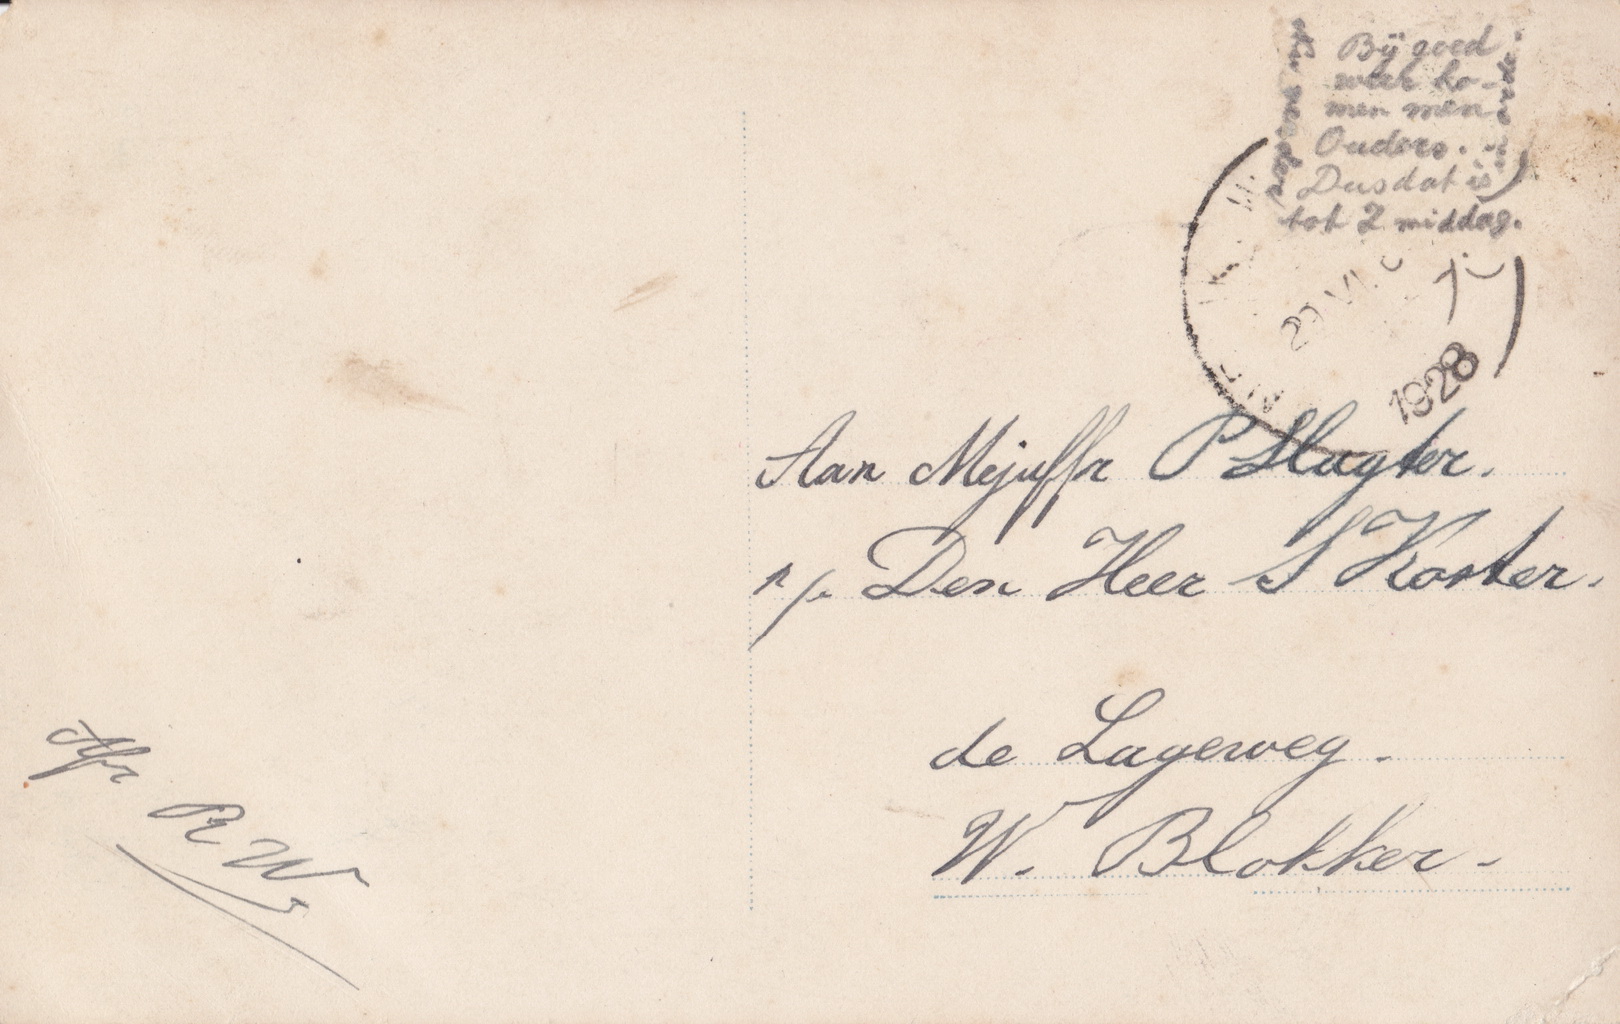 Bij goed
weer ko-
men mijn
Ouders.
Dus dat is
tot 2 middag.
29 VI
1928
Aan Mejuffr P Slagter.
p/a. Den Heer S Koster.
de Lageweg.
W. Blokker.
Afz
R W